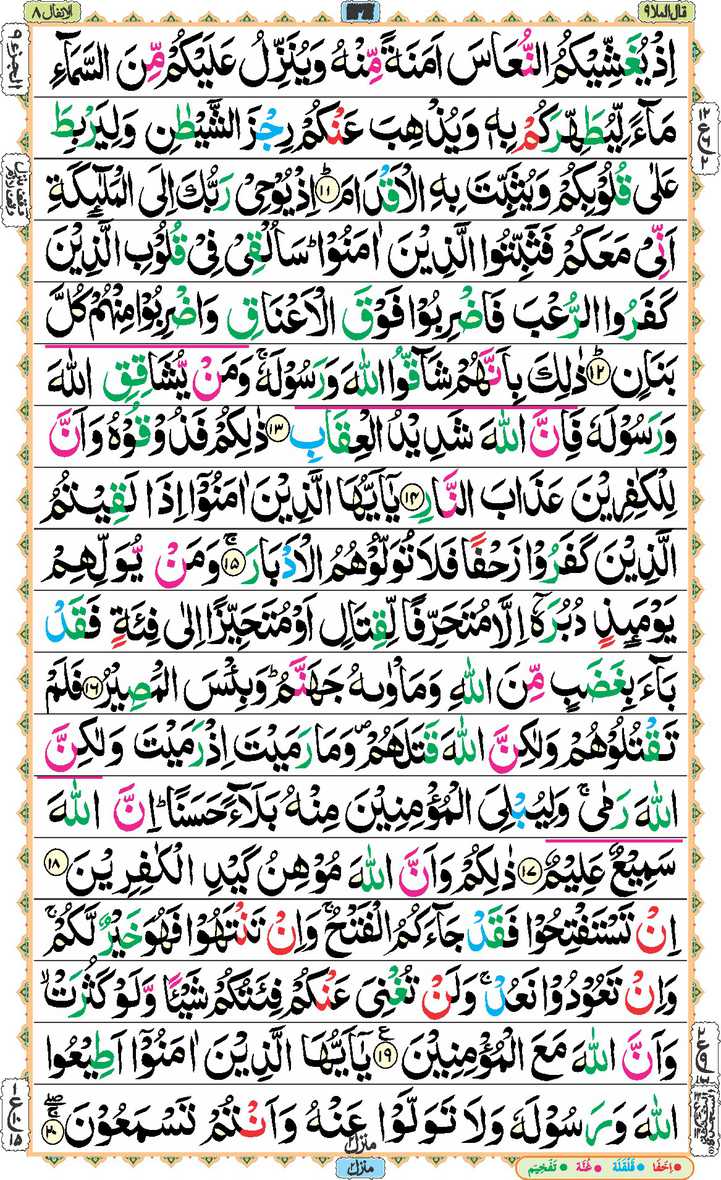 قال الملا ٩
الانفال ٨
اِذْ يُغَشِّيْكُمُ النُّعَاسَ اَمَنَةً مِّنْهُ وَيُنَزِّلُ عَلَيْكُمْ مِّنَ السَّمَآءِ
مَآءً لِّيُطَهِّرَكُمْ بِهٖ وَيُذْهِبَ عَنْكُمْ رِجْزَ الشَّيْطٰنِ وَلِيَرْبِطَ
عَلٰى قُلُوْبِكُمْ وَيُثَبِّتَ بِهِ الْاَقْدَامَ ؕ‏ ١١ اِذْ يُوْحِىْ رَبُّكَ اِلَى الْمَلٰٓئِكَةِ
اَنِّىْ مَعَكُمْ فَثَبِّتُوا الَّذِيْنَ اٰمَنُوْا ؕ سَاُلْقِىْ فِىْ قُلُوْبِ الَّذِيْنَ
كَفَرُوا الرُّعْبَ فَاضْرِبُوْا فَوْقَ الْاَعْنَاقِ وَاضْرِبُوْا مِنْهُمْ كُلَّ
بَنَانٍ ؕ ١٢ ذٰلِكَ بِاَنَّهُمْ شَآقُّوا اللّٰهَ وَرَسُوْلَهٗ ۚ وَمَنْ يُّشَاقِقِ اللّٰهَ
وَرَسُوْلَهٗ فَاِنَّ اللّٰهَ شَدِيْدُ الْعِقَابِ ١٣ ذٰلِكُمْ فَذُوْقُوْهُ وَاَنَّ
لِلْكٰفِرِيْنَ عَذَابَ النَّارِ ١٤ يٰۤاَيُّهَا الَّذِيْنَ اٰمَنُوْۤا اِذَا لَقِيْتُمُ
الَّذِيْنَ كَفَرُوْا زَحْفًا فَلَا تُوَلُّوْهُمُ الْاَدْبَارَ ۚ ١٥ وَمَنْ يُّوَلِّهِمْ
يَوْمَئِذٍ دُبُرَهٗۤ اِلَّا مُتَحَرِّفًا لِّقِتَالٍ اَوْ مُتَحَيِّزًا اِلٰى فِئَةٍ فَقَدْ
بَآءَ بِغَضَبٍ مِّنَ اللّٰهِ وَمَاْوٰىهُ جَهَنَّمُ ؕ وَبِئْسَ الْمَصِيْرُ ١٦ فَلَمْ
تَقْتُلُوْهُمْ وَلٰكِنَّ اللّٰهَ قَتَلَهُمْ ۪ وَمَا رَمَيْتَ اِذْ رَمَيْتَ وَلٰكِنَّ
اللّٰهَ رَمٰى ۚ وَلِيُبْلِىَ الْمُؤْمِنِيْنَ مِنْهُ بَلَآءً حَسَنًا ؕ اِنَّ اللّٰهَ
سَمِيْعٌ عَلِيْمٌ ١٧ ذٰلِكُمْ وَاَنَّ اللّٰهَ مُوْهِنُ كَيْدِ الْكٰفِرِيْنَ ١٨
اِنْ تَسْتَفْتِحُوْا فَقَدْ جَآءَكُمُ الْفَتْحُ ۚ وَاِنْ تَنْتَهُوْا فَهُوَ خَيْرٌ لَّكُمْ ۚ
وَاِنْ تَعُوْدُوْا نَعُدْ ۚ وَلَنْ تُغْنِىَ عَنْكُمْ فِئَتُكُمْ شَيْـًٔا وَّلَوْ كَثُرَتْ ۙ
وَاَنَّ اللّٰهَ مَعَ الْمُؤْمِنِيْنَ ١٩ ع يٰۤاَيُّهَا الَّذِيْنَ اٰمَنُوْۤا اَطِيْعُوا
اللّٰهَ وَرَسُوْلَهٗ وَلَا تَوَلَّوْا عَنْهُ وَاَنْتُمْ تَسْمَعُوْنَ ٢٠
منزل ٢
منزل ٢
اخفا قلقلة غنة تفخيم